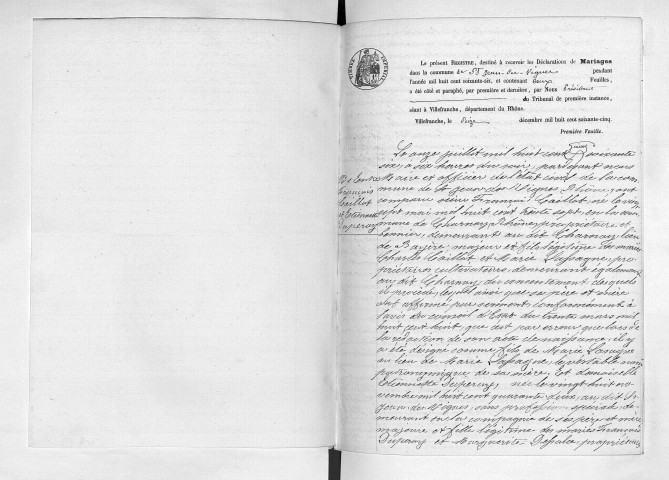 Le présent REGISTRE, destiné à recevoir les Déclarations de Mariages
dans la commune de St Jean des Vignes pendant
l'année mil huit cent soixante-six, et contenant deux Feuilles,
a été côté et paraphé, par première et dernière, par Nous Président
du Tribunal de première instance,
séant à Villefranche, département du Rhône.
Villefranche, le Seize décembre mil huit cent soixante-cinq.
Première Feuille.
Le onze juillet mil huit cent soixante
six, à six heures du soir, par devant nous
Maire et officier de l'état civil de la com
mune de St Jean des Vignes, Rhône, ont
comparu sieur François Caillot, né le vingt
sept mai mil huit cent trente sept, en la com
mune de Charnay, Rhône, propriétaire et
demeurant au dit Charnay, lieu
de Bayère, majeur et fils légitime des mariés
Charles Caillot et Marie Lassagne, pro
priétaires cultivateurs, demeurant également
au dit Charnay, du consentement desquels
il procède, lequel ainsi que ses père et mère
ont affirmé par serment, conformément à
l'avis du conseil d'Etat du trente mars mil
huit cent huit, que c'est par erreur que lors de
la rédaction de son acte de naissance, il y
a été désigné comme fils de Marie
au lieu de Marie Lassagne, le véritable nom
patronymique de sa mère, Et demoiselle
Etiennette Duperay, née le vingt huit no
vembre mil huit cent quarante deux, au dit St
Jean des Vignes, sans profession spéciale, de
meurant en la compagnie de ses père et mère
majeure et fille légitime des mariés François
Duperay et Marguerite propriétaires
Entre
François
Caillot
et Etiennette
Duperay